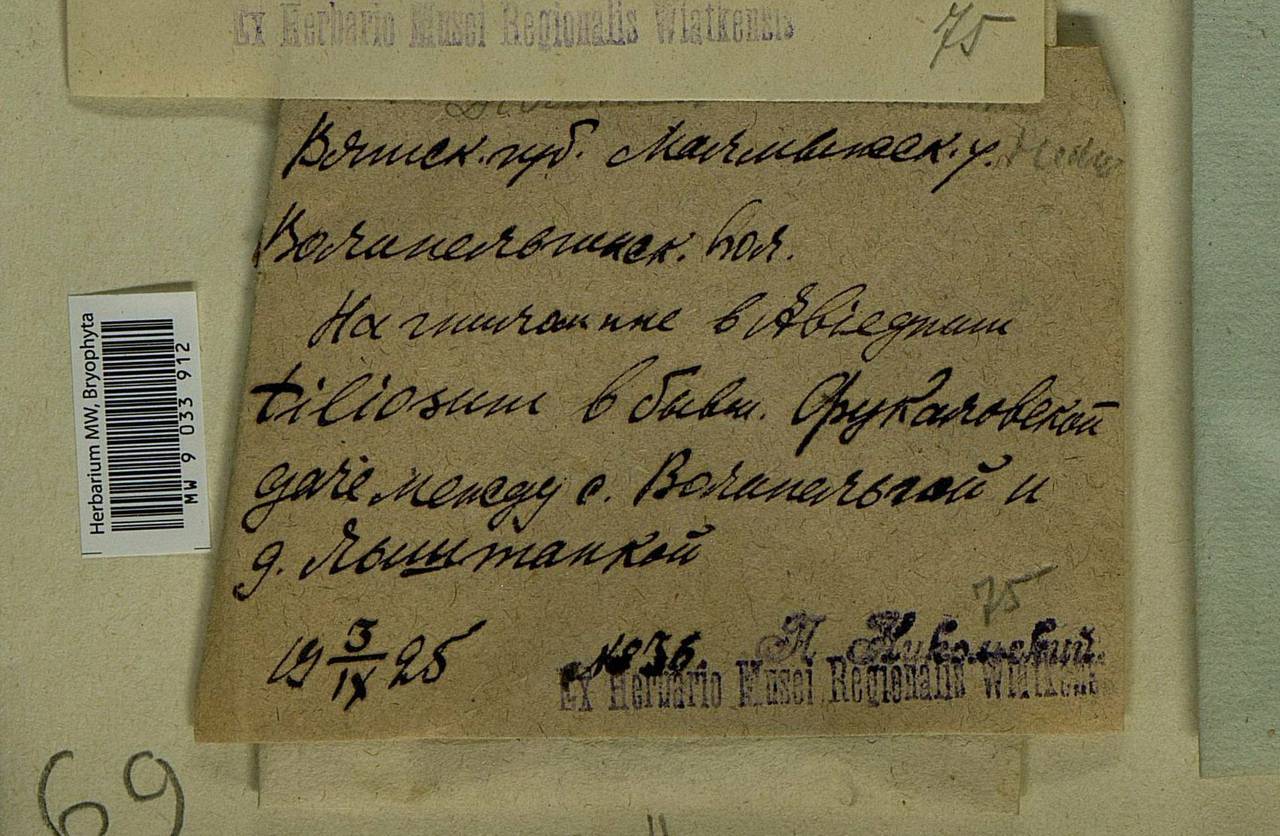 Ex Herbario Musei Regionalis Wiatkensis
75
Вятск. губ. Малмыжск. у.
Волипельгинск. вол.
На гнилом пне в Abiegnum
tiliosum в бывш. Фукаловской
даче между с. Волипельгой и
д. Лыштанкой
19 3/IX 25
№ 36
75
П. Никольский.
Ex Herbario Musei Regionalis Wiatkens
Herbarium MW, Bryophyta
MW 9 033 912
69